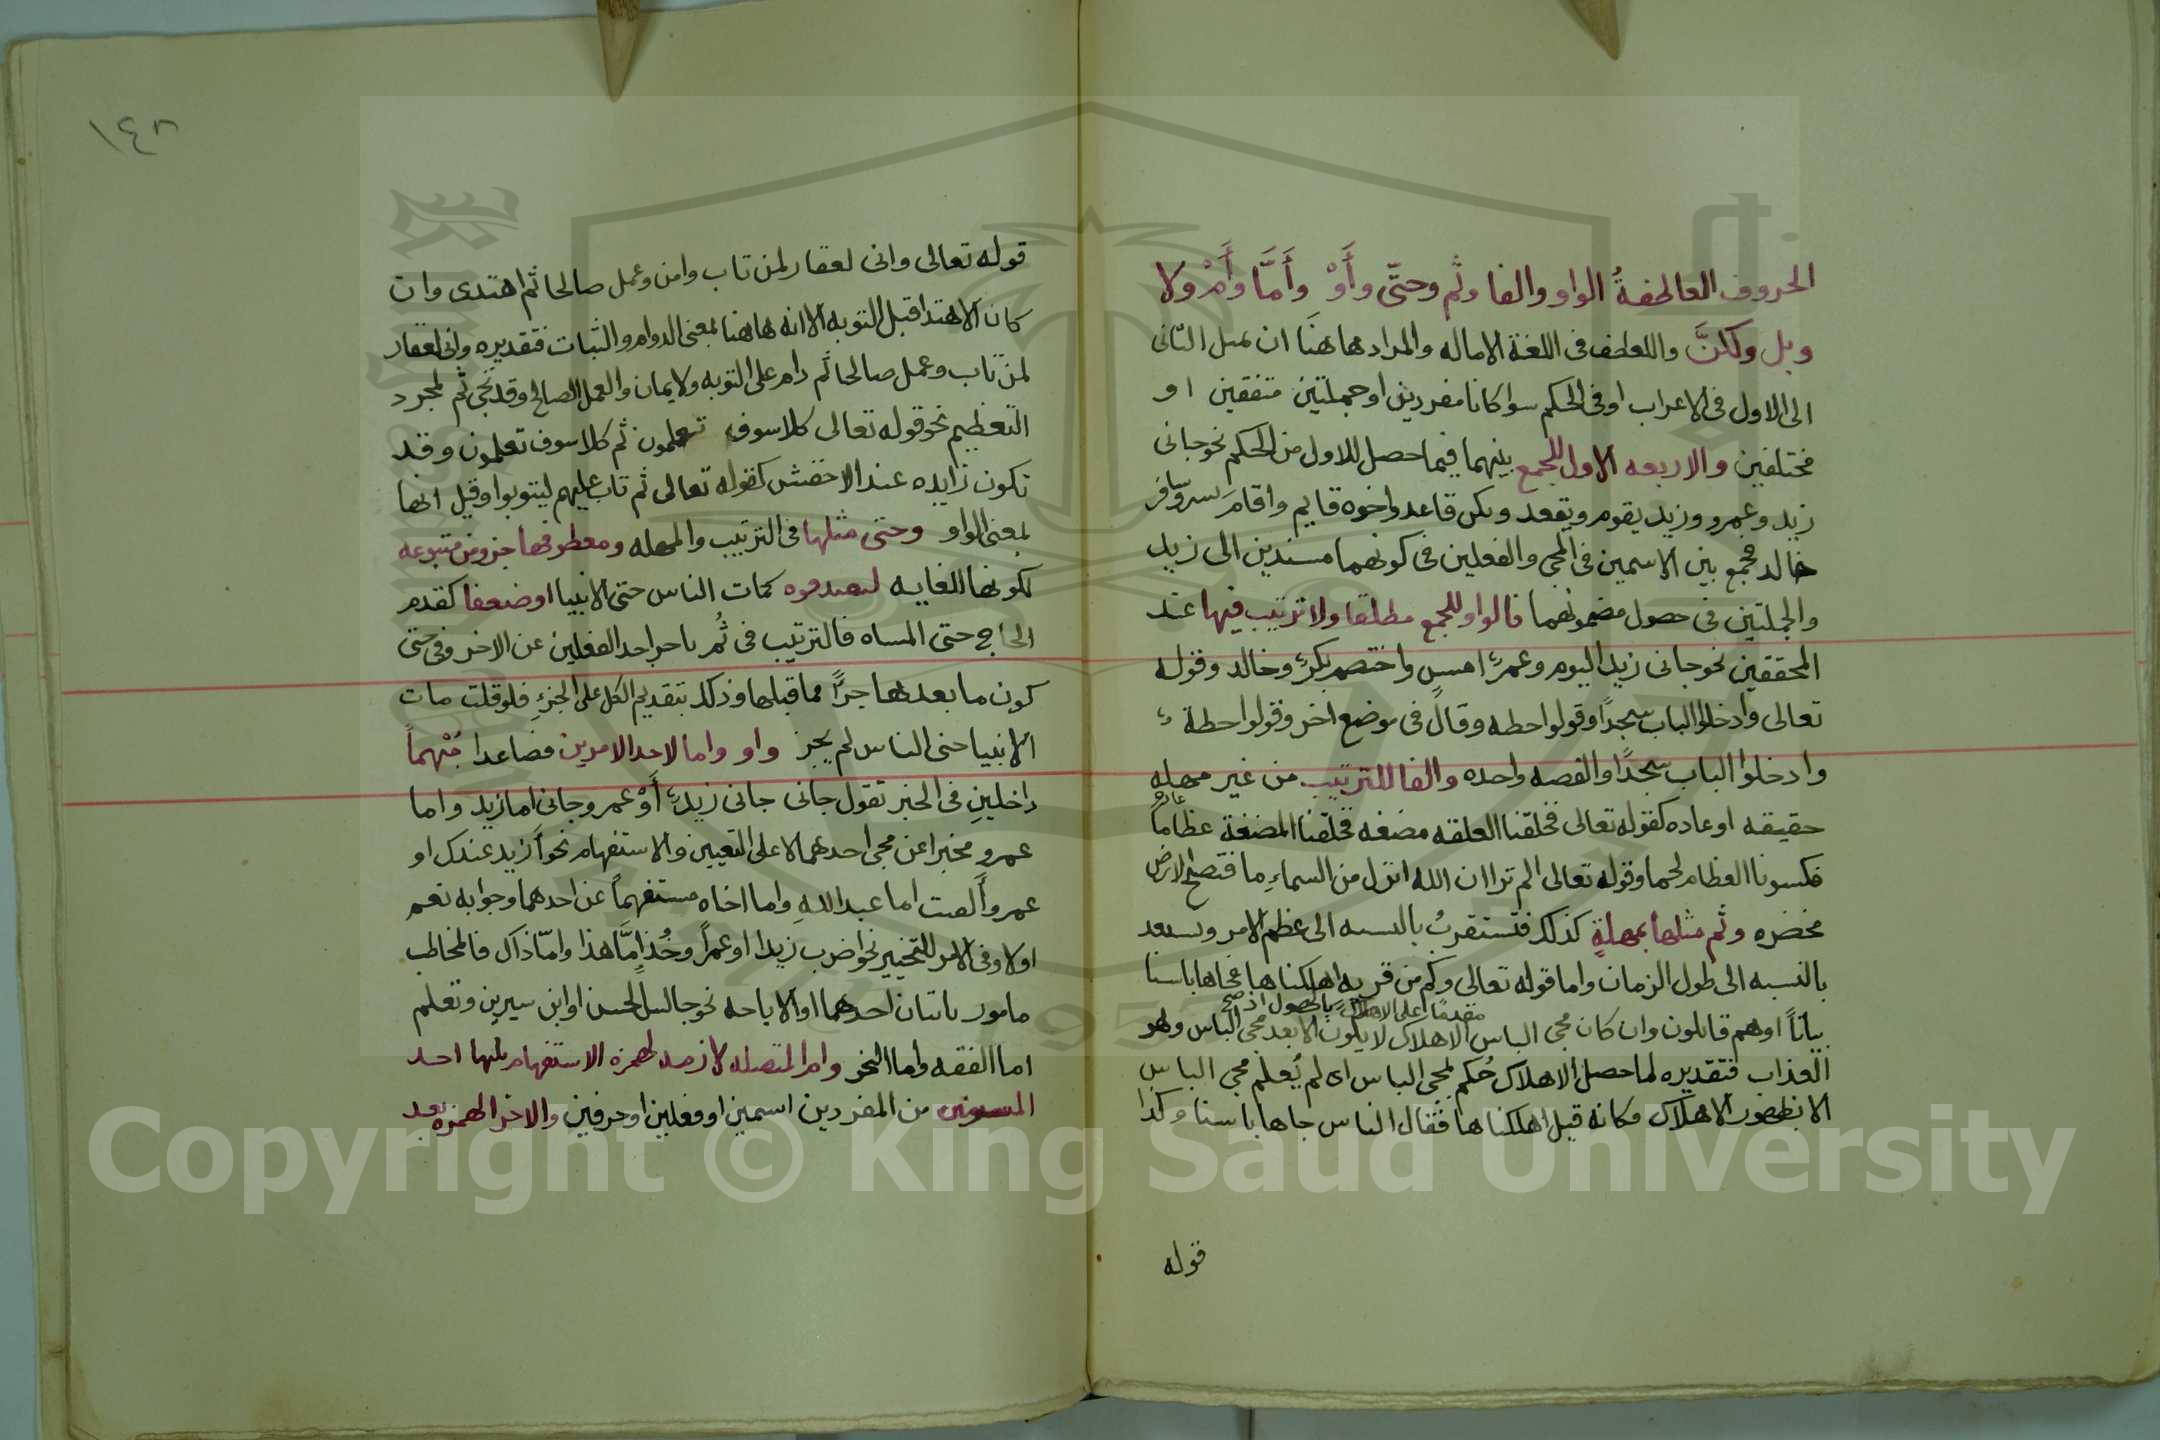 الحروف العاطفةُ الواو والفا وثم وحتّى وأَوْ وأَمَّا وأَمْ ولا
وبل ولكنَّ والعطف فى اللغة الاماله والمراد هاهنَا ان يميل الثانى
الى الاول فى الاعراب او فى الحكم سوا كانا مفردين او جملتين متفقين او
مختلفين والاربعه الاول للجمع بينهما فيما حصل للاول من الحكم نحو جانى
زيد وعمرو وزيد يقوم ويقعد وبكر قاعد واخوه قايم واقامَ بشر وسافر
خالد فجمع بين الاسمين فى المجى والفعلين فى كونهما مسندين الى زيد
والجملتين فى حصول مضمونهما فالواو للجمع مطلقا ولا ترتيب فيها عند
المحققين نحو جانى زيد اليوم وعمرٌ امسِ واختصم بكرٌ وخالد وقوله
تعالى وادخلوا الباب سجدًا وقولوا حطه وقال فى موضع اخر وقولوا حطة
وادخلوا الباب سجدًا والقصه واحده والفا للترتيب من غير مهله
حقيقه او عاده كقوله تعالى فخلقنا العلقه مضغه فخلقنا المضغة عظاماً
فكسونا العظام لحما وقوله تعالى الم تر ان الله انزل من السماءِ ما فتصبح الارض
مخضره وثم مثلها بمهلةٍ كذلك فتستقربُ بالنسبه الى عظم الامر وتستبعد
بالنسبه الى طول الزمان واما قوله تعالى وكم من قريه اهلكناها فجاها باسنا
مقدمًا على الاهلاك بالحصول اذ صح
بياتاً اوهم قايلون وان كان مجى الباس الاهلاك لا يكون الا بعد مجى الباس وهو
العذاب فتقديره لما حصل الاهلاك حُكم بمجى الباس اى لم يُعلم مجى الباس
الا بظهور الاهلاك وكانه قيل اهلكناها فقال الناس جاها باسنا وكذا
قوله
١٤٨
قوله تعالى وانى لغفار لمن تاب وامن وعمل صالحا ثم اهتدى وان
كان الاهتدا قبل التوبه الا انه هاهنا بمعنى الدوام والثبات فتقديره وانى لغفار
لمن تاب وعمل صالحا ثم دام على التوبه ولايمان والعمل الصالح وقد تجى ثم لمجرد
التعظيم نحو قوله تعالى كلا سوف تعلمون ثم كلا سوف تعلمون وقد
تكون زايده عند الاخفش كقوله تعالى ثم تاب عليهم ليتوبوا وقيل انها
بمعنى الواو وحتى مثلها فى الترتيب والمهله ومعطوفها جزو من متبوعه
لكونها للغايه ليفيد قوه كمات الناس حتى الانبيا او ضعفا كقدم
الحاج حتى المساه فالترتيب فى ثُم باخر احد الفعلين عن الاخر وفى حتى
كون ما بعدها جزًّا مما قبلها وذلك بتقديم الكل على الجزءِ فلو قلت مات
الانبيا حتى الناس لم يجز واو واما لاحد الامرين فصاعدا مُبْهماً
داخلينِ فى الخبر تقول جانى جانى زيدٌ أَوْ عمرو وجانى اما زيد واما
عمرو مخبرا عن مجى احدهما لا على التعيين والاستفهام نحو أزيد عندك او
عمرو أَلقيت اما عبد اللهِ واما اخاه مستفهماً عن احدهما وجوابه نعم
اولا وفى الامر للتخيير نحو اضرب زيدا او عمراً وخُذ إِمَّا هذا وامّا ذاك فالمخاطب
مامور باتيان احدهما او الاباحه نحو جالس الحسن او ابن سيرين وتعلم
اما الفقه واما النحو وام المتصله لازمه لهمزه الاستفهام يليها احد
المستويين من المفردين اسمين او فعلين او حرفين والاخر الهمزه بعد
Copyright © King Saud University